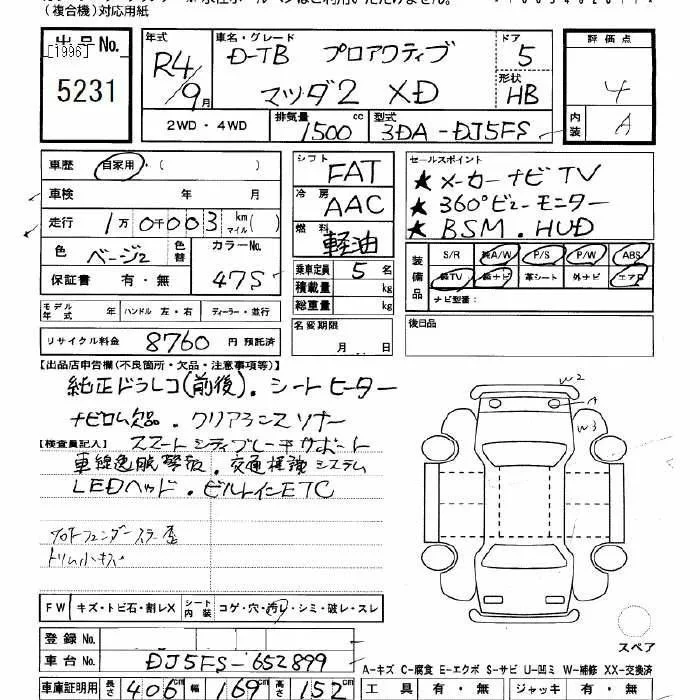 (複合機)対応用紙
出品No.
[1996]
5231
年式 R4/9月
車名・グレード D-TB プロアクティブ
マツダ2 XD
ドア 5
形状 HB
評価点
4
内装 A
2WD・4WD
排気量 1500cc
型式 3DA-DJ5FS
車歴 自家用・(
車検 年 月
走行 1万0千003 km マイル( )
色 ベージ2
色替
カラーNo. 47S
保証書 有・無
シフト FAT
冷房 AAC
燃料 軽油
乗車定員 5名
積載量 kg
総重量 kg
セールスポイント
★メーカーナビTV
★360°ビューモニター
★BSM.HUD
装備品
S/R 純A/W P/S P/W ABS
純TV 純ナビ 革シート 外ナビ エアB
ナビ型番:
モデル年式 年 ハンドル 左・右 ディーラー・並行
名変期限
月 日
後日品
リサイクル料金 8760 円 預託済
【出品店申告欄(不良箇所・欠品・注意事項等)】
純正ドラレコ(前後).シートヒーター
ナビロム欠品.クリアランスソナー
【検査員記入】 スマートシティブレーキサポート
車線逸脱警報.交通標識システム
LEDヘッド.ビルトインETC
トリム小キズ
W2
A
W3
FW キズ・トビ石・割レX
シート内装 コゲ・穴・汚レ・シミ・破レ・スレ
スペア
登録No.
車台No. DJ5FS-652899
A-キズ C-腐食 E-エクボ S-サビ U-凹ミ W-補修 XX-交換済
車庫証明用 長さ 406cm 幅 169cm 高さ 152cm
工具 有・無 ジャッキ 有・無